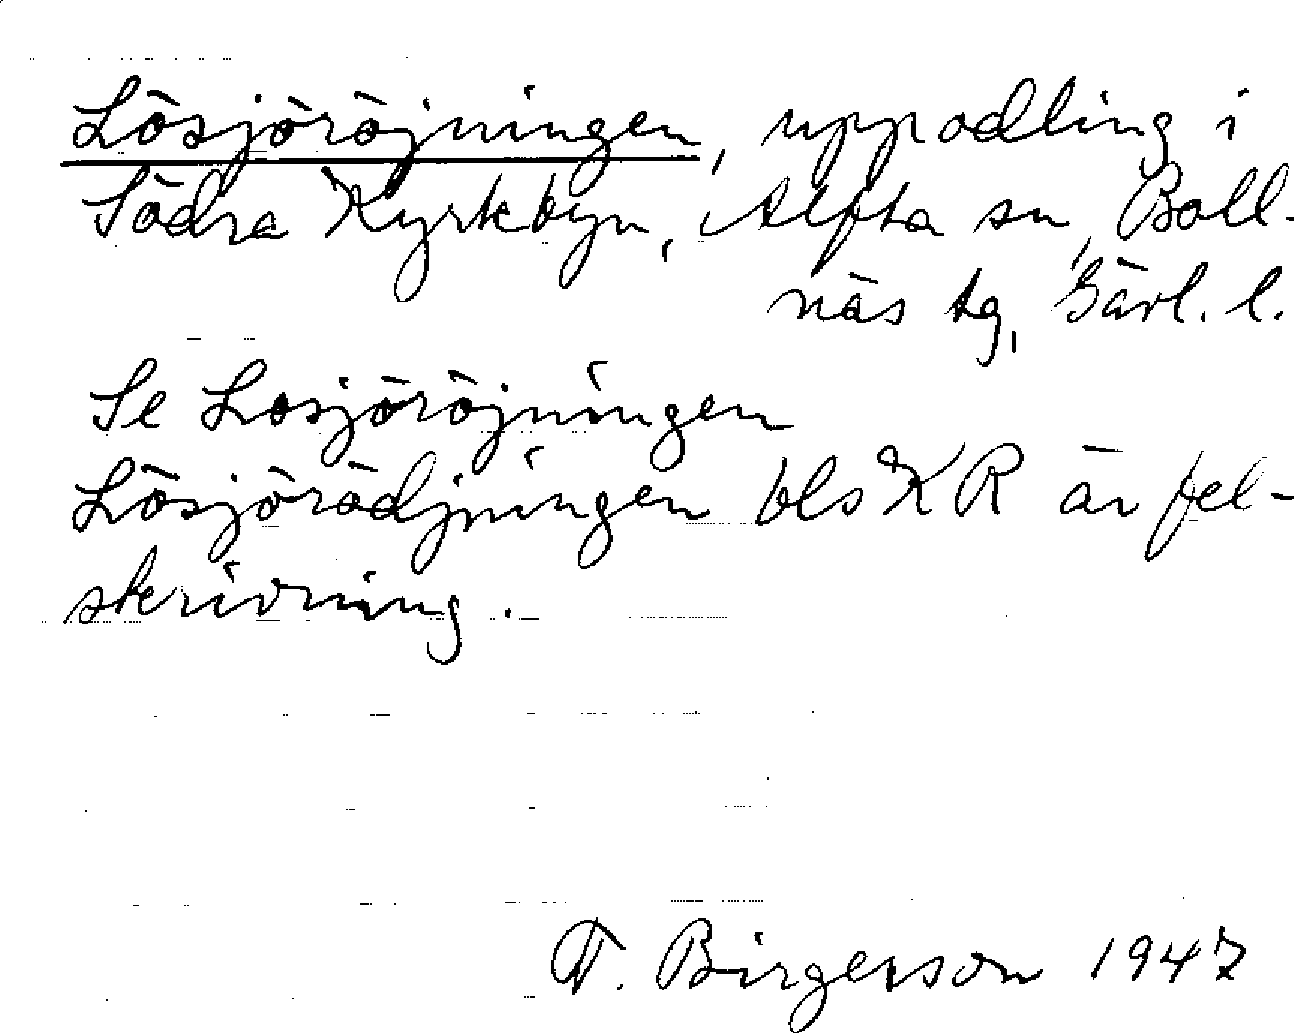 Lösjöröjningen, uppodling i
Södra Kyrkbyn, Alfta sn, Boll-
näs tg, Gävl. l.
Se Losjöröjningen
Lösjörödjningen bls KR är fel-
skrivning.
T. Birgerson 1947